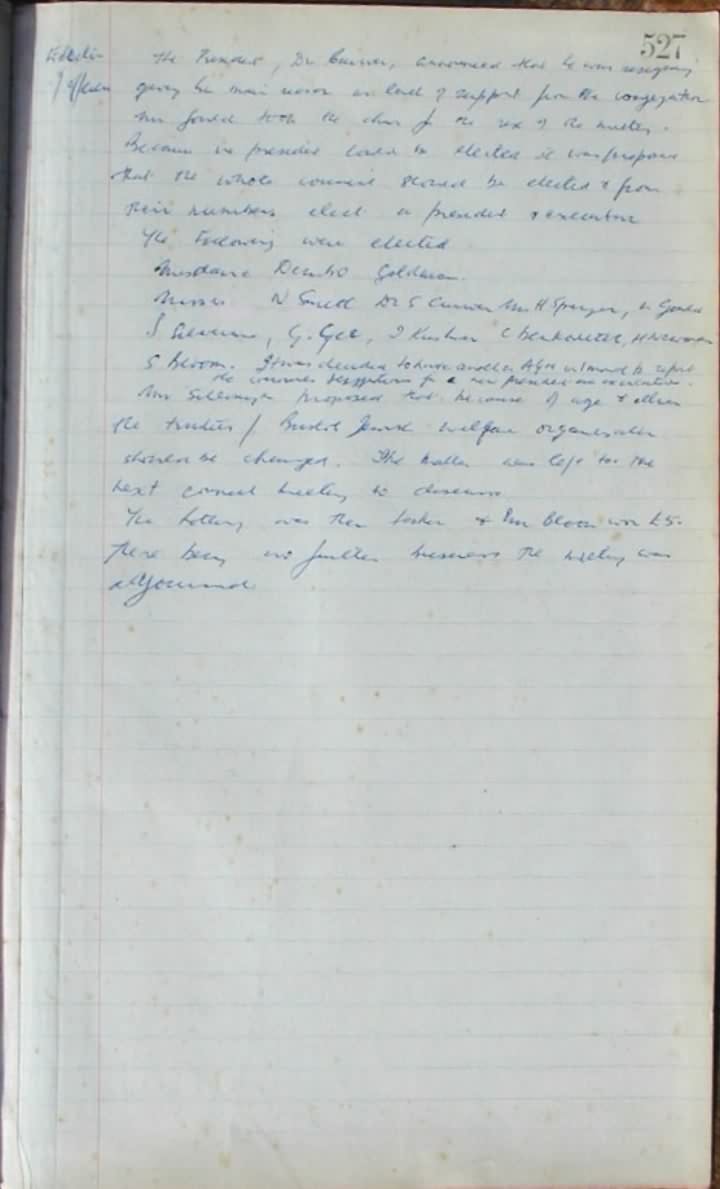 527
Election
of officers
The President, Dr Curwen, announced that he was resigning
giving his main reason as lack of support from the congregation
Mr Gould took the chair for the rest of the meeting.
Because no president could be elected it was proposed
that the whole council should be elected & from
their numbers elect a president & executive
The Following were elected
Mesdames Dembo Goldman.
Messrs. N Dr S Curwen Mr H Spenger, Gould
S G. Gee, I Kushner C Berkowitz, H Newman
S Bloom. It was decided to have another AGM in 1 month to report
the councils suggestions for a new president and executive.
Mr proposed that because of age & illness
the trustees / Bristol Jewish welfare organisation
should be changed. The matter was left for the
next council meeting to discuss.
The Lottery was then & Mr Bloom won £5.
There being no further business the meeting was
adjourned